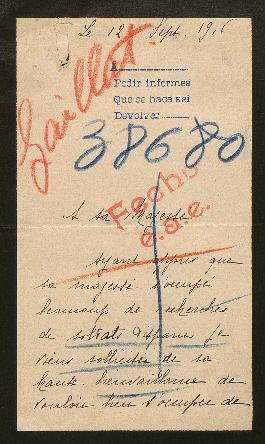 Le 12 Sept. 1916
A
Pedir informes
Que se haga así
Devolver
Gaillat
38680
Fecho
e.a.e.
A sa Majesté
Ayant appris que
sa majesté s'occupe
beaucoup de recherches
de soldats disparus je
viens solliciter de sa
haute bienvaillance de
vouloir bien s'occuper de